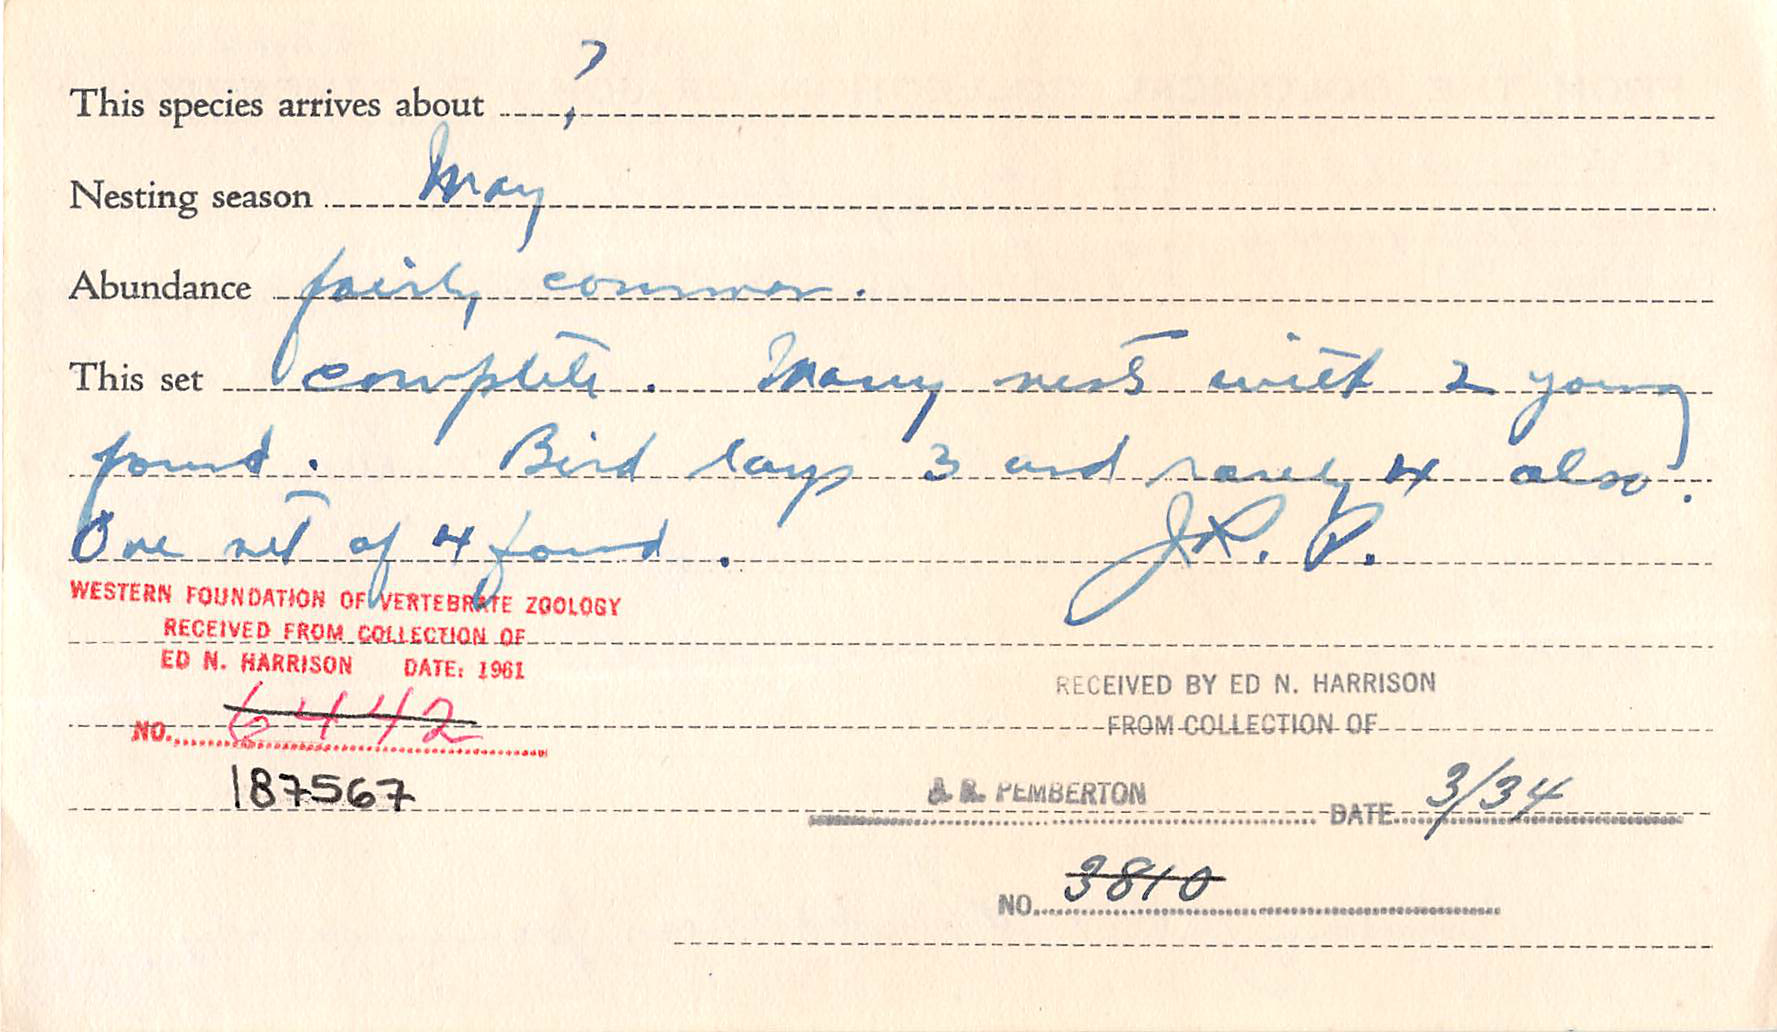 This species arrives about ?
Nesting season May
Abundance fairly common.
This set complete. Many nests with 2 young
found. Bird lays 3 and rarely 4 also.
One set of 4 found. J.R.P.
WESTERN FOUNDATION OF VERTEBRATE ZOOLOGY
RECEIVED FROM COLLECTION OF
ED N. HARRISON DATE: 1961
NO. 6442
187567
RECEIVED BY ED N. HARRISON
FROM COLLECTION OF
J. R. PEMBERTON DATE 3/34
NO. 3810